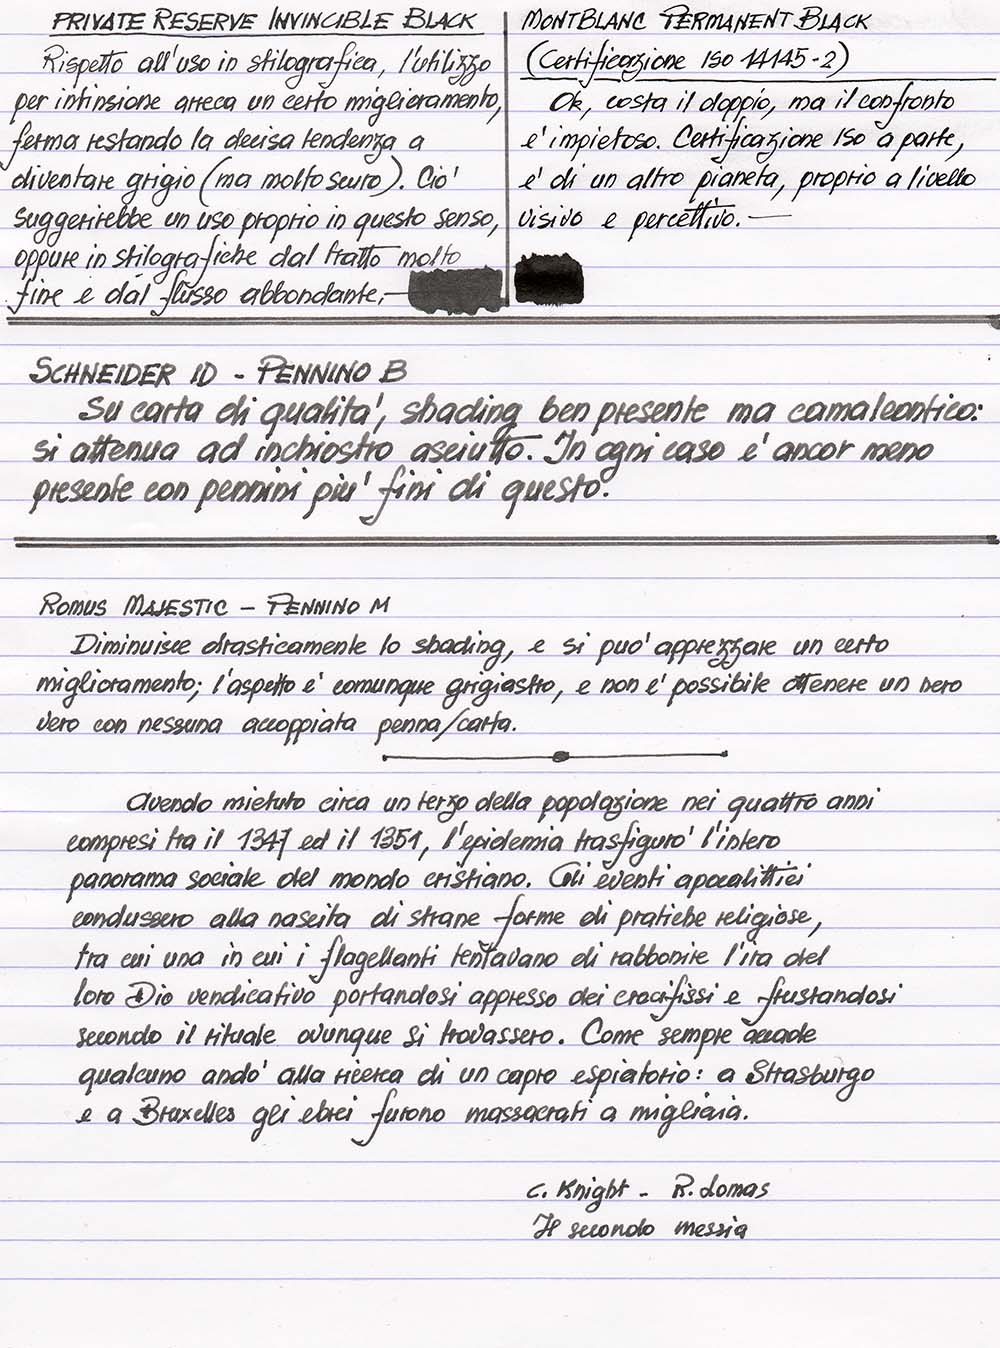 PRIVATE RESERVE INVINCIBLE BLACK
Rispetto all'uso in stilografica, l'utilizzo
per intinsione arreca un certo miglioramento,
ferma restando la decisa tendenza a
diventare grigio (ma molto scuro). Cio'
suggerirebbe un uso proprio in questo senso,
oppure in stilografiche dal tratto molto
fine e dal flusso abbondante.—
MONTBLANC PERMANENT BLACK
(Certificazione ISO 14145-2)
Ok, costa il doppio, ma il confronto
e' impietoso. Certificazione ISO a parte,
e' di un altro pianeta, proprio a livello
visivo e percettivo.—
SCHNEIDER ID - PENNINO B
Su carta di qualita', shading ben presente ma camaleontico:
si attenua ad inchiostro asciutto. In ogni caso e' ancor meno
presente con pennini piu' fini di questo.
ROMUS MAJESTIC - PENNINO M
Diminuisce drasticamente lo shading, e si puo' apprezzare un certo
miglioramento; l'aspetto e' comunque grigiastro, e non e' possibile ottenere un nero
vero con nessuna accoppiata penna/carta.
Avendo mietuto circa un terzo della popolazione nei quattro anni
compresi tra il 1347 ed il 1351, l'epidemia trasfiguro' l'intero
panorama sociale del mondo cristiano. Gli eventi apocalittici
condussero alla nascita di strane forme di pratiche religiose,
tra cui una in cui i flagellanti tentavano di rabbonire l'ira del
loro Dio vendicativo portandosi appresso dei crocifissi e frustandosi
secondo il rituale ovunque si trovassero. Come sempre accade
qualcuno ando' alla ricerca di un capro espiatorio: a Strasburgo
e a Bruxelles gli ebrei furono massacrati a migliaia.
C. Knight - R. Lomas
Il secondo messia